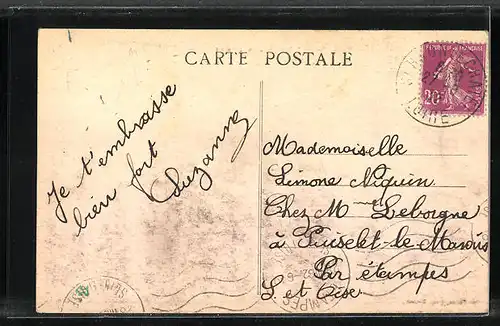 CARTE POSTALE
Je t'embrasse
bien fort
Suzanne
REPUBLIQUE FRANÇAISE
20c
LOIRE
Mademoiselle
Simone Niquin
Chez Mme Leborgne
à Puiselet-le-Marais
Par étampes
S. et Oise